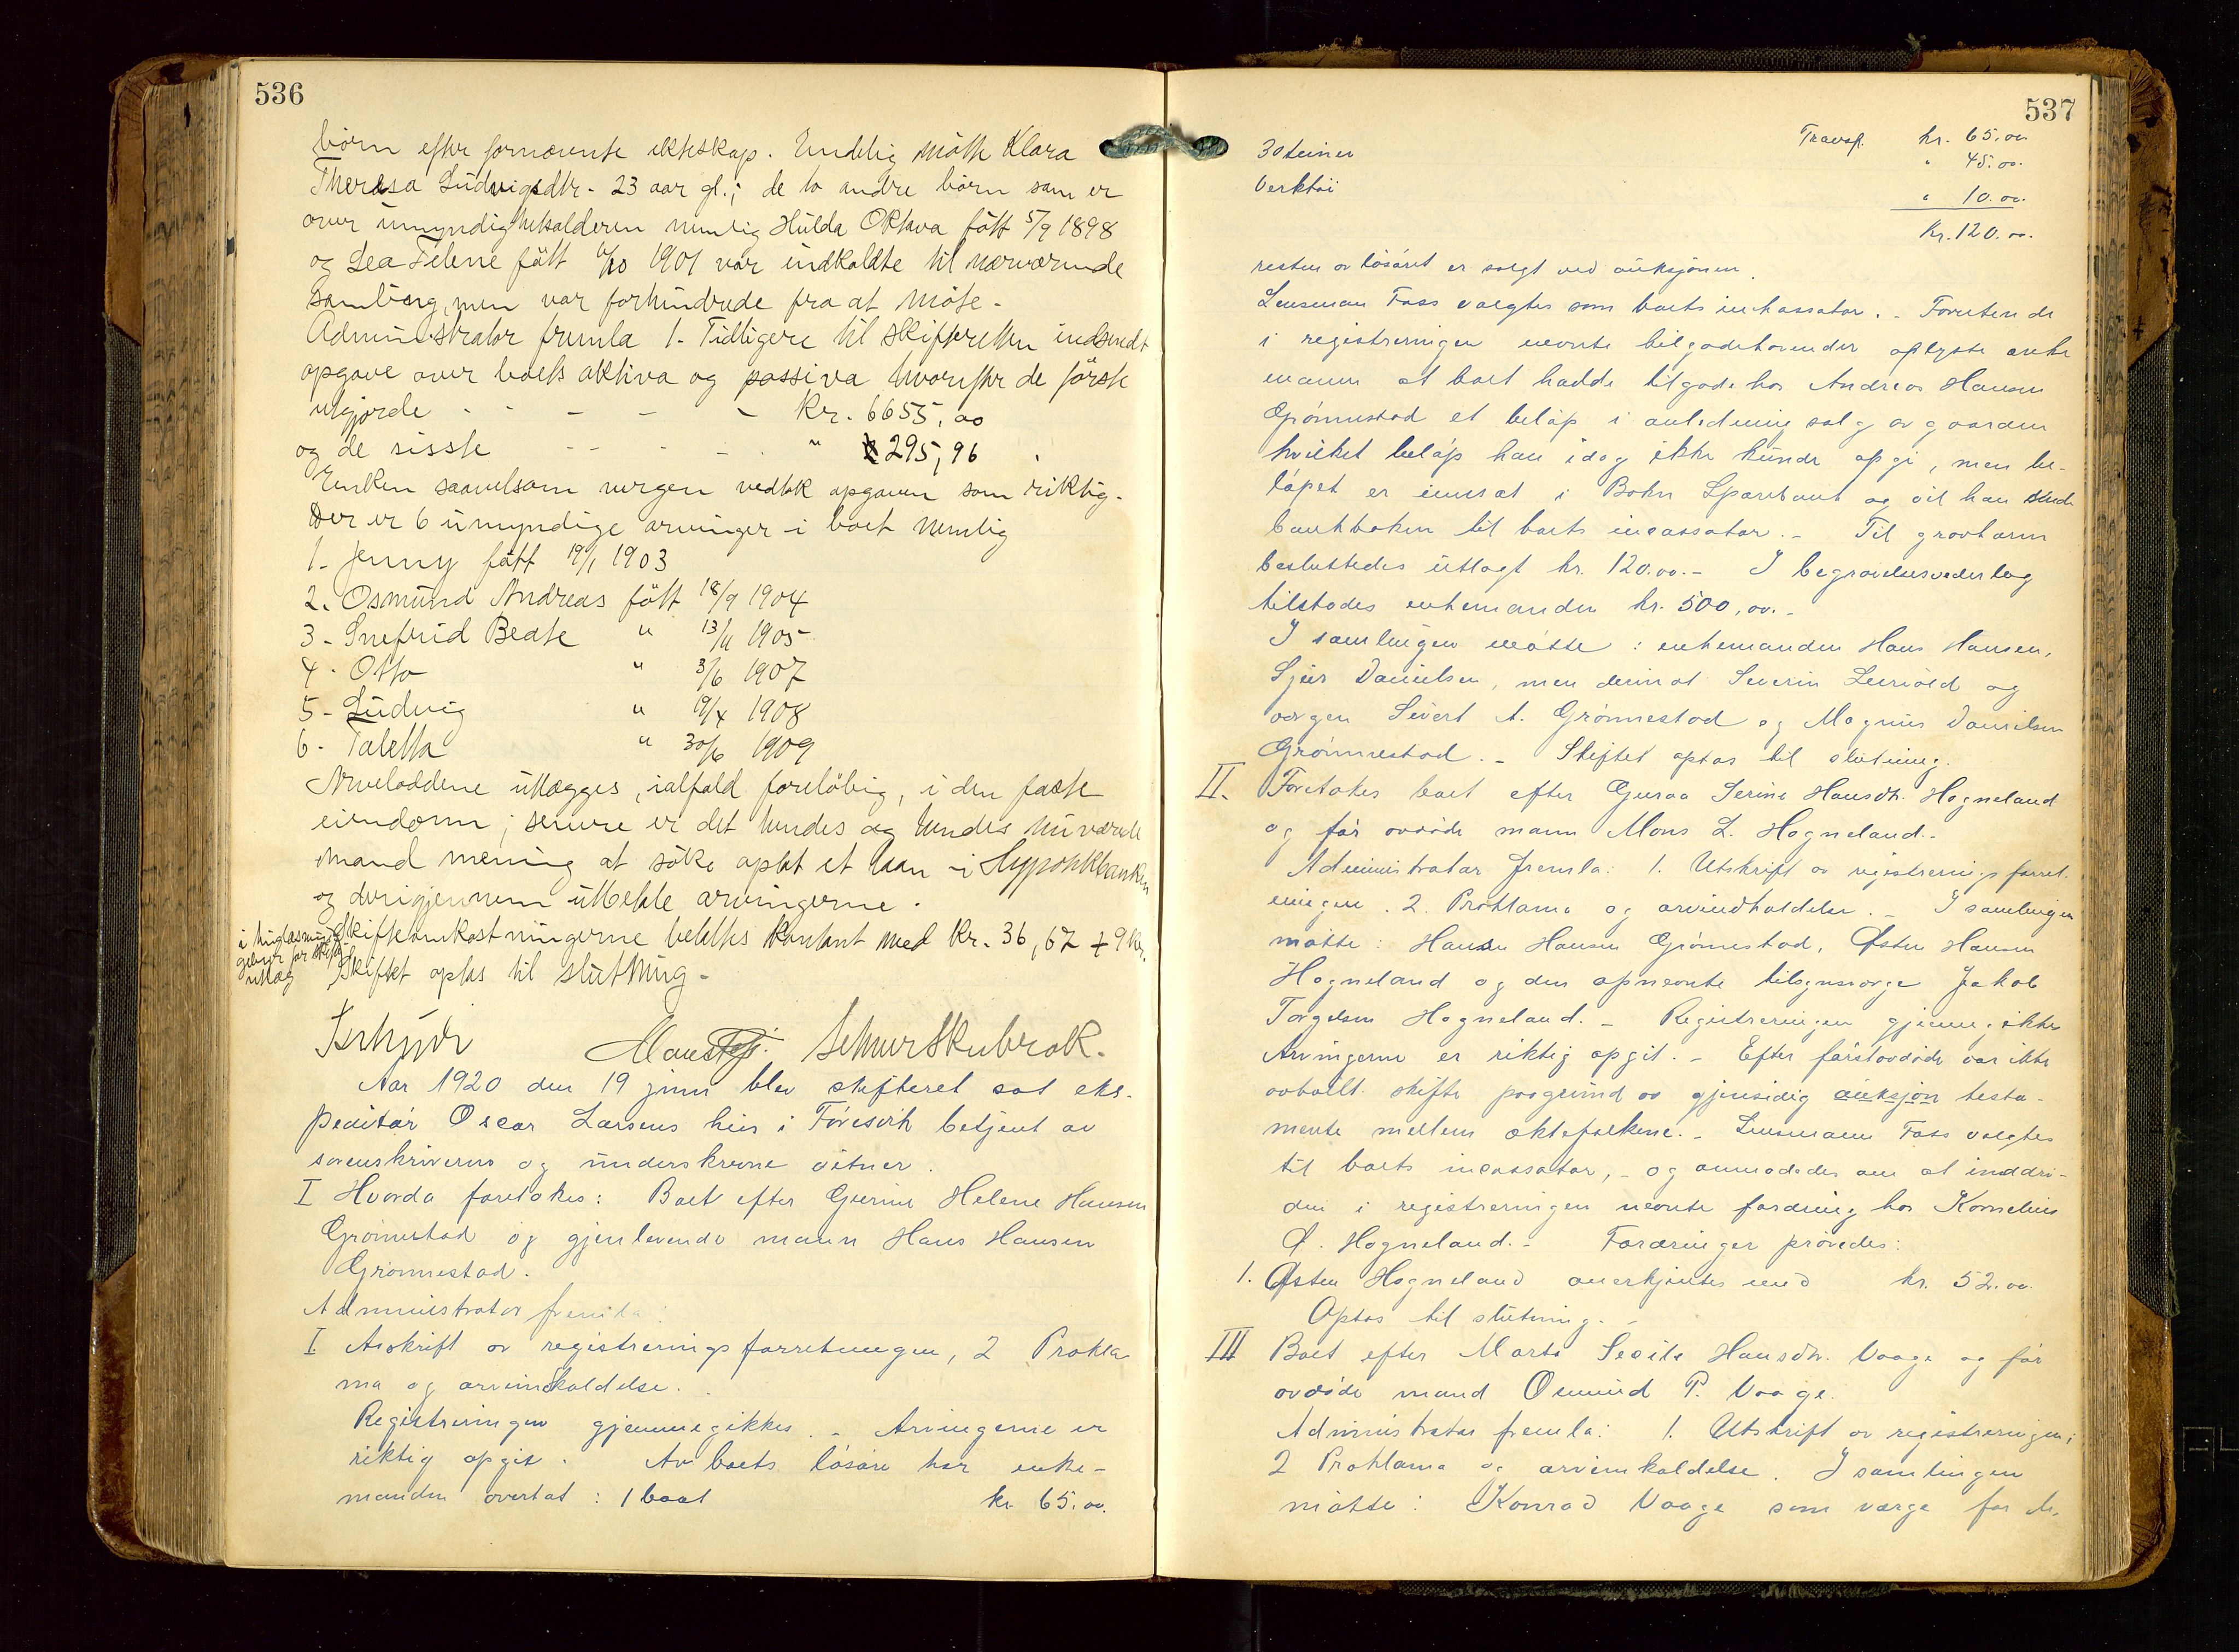 536
børn efter fornævnte ekteskap. Endelig møtte Klara
Theresa Ludvigsdtr. 23 aar gl.; de to andre børn som er
over umyndighetsalderen nemlig Hulda Oktava født 5/9 1898
og Lea Telene født 6/10 1901 var indkaldte til nærværende
samling, men var forhindrede fra at møte.
Administrator fremla 1. Tidligere til skifteretten indsendt
opgave over boets aktiva og passiva hvorefter de første
utgjorde - - - - - Kr. 6655,00
og de sisste - - - - " 295,96
Enken saavelsom vergen vedtok opgaven som riktig.
Der er 6 umyndige arvinger i boet nemlig
1. Jenny født 19/1 1903
2. Osmund Andreas født 18/9 1904
3. Snefrid Beate " 13/11 1905
4. Otto " 3/6 1907
5. Ludvig " 19/4 1908
6. Taletta " 30/6 1909
Arveloddene utlægges, ialfald foreløbig, i den faste
eiendom; senere er det hendes og hendes nuværende
mand mening at søke optat et laan i Hypotekbanken
og derigjennem utbetale arvingerne.
Skifteomkostningerne betaltes kontant med Kr. 36,67 + 9 Kr.
i tinglæsnings
gebyr for skifte
utlæg
Skiftet optas til slutning.
Schnur Skubrak.
Aar 1920 den 19 juni blev skifteret sat eks-
peditør Oscar Larsens hus i Føresvik betjent av
sorenskriveren og underskrevne vitner.
I Hvorda foretokes: Boet efter Gurine Helene Hansen
Grønnestad og gjenlevende mann Hans Hansen
Grønnestad.
Administrator fremla:
I Avskrift av registreringsforretningen, 2 Prokla-
ma og arveindkaldelse.
Registreringen gjennemgikkes. - Arvingerne er
riktig opgit. Av boets løsøre har enke-
manden overtat: 1 baat kr 65.00.
537
Transp. kr. 65.00
30 teiner " 45.00.
Verktøi " 10.00.
Kr. 120.00.
resten av løsøret er solgt ved auksjonen.
Lensman Foss valgtes som boets inkassator. - Foruten de
i registreringen nevnte tilgodehavender oplyste enke
mannen at boet hadde tilgode hos Andreas Hansen
Grønnestad et beløp i anledning salg av gaarden
hvilket beløp han idag ikke kunde opgi, men be-
løpet er innsat i Bokn Sparebank og vil han sende
bankboken til boets incassator. - Til gravharm
besluttedes utlagt kr. 120.00. - I begravelsesvederlag
tilstodes enkemanden kr. 500,00. -
I samlingen møtte: enkemanden Hans Hansen,
Sjur Danielsen, men derimot Severin Lervold og
vergen Sivert A. Grønnestad og Magnus Danielsen
Grønnestad. - Skiftet optas til slutning.
II. Foretokes boet efter Guroa Serine Hansdtr. Hogneland
og før avdøde mann Mons L. Hogneland. -
Administrator fremla: 1. Utskrift av registreringsforret-
ningen. 2. Proklama og arveindkaldelse. - I samlingen
møtte: Hansen Hansen Grønnestad, Østen Hansen
Hogneland og den opnevnte tilsynsverge Jakob
Torgelsen Hogneland. - Registreringen gjennemgikkes
Arvingerne er riktig opgit. - Efter førstavdøde var ikke
avholt skifte paagrund av gjensidig auksjon testa-
mente mellem ektefolkene. - Lensmann Foss valgtes
til boets incassator, - og anmodedes om at inddri-
den i registreringen nevnte fordring hos Kornelius
Ø. Hogneland. - Fordringer prøvedes:
1. Østen Hogneland anerkjentes med kr. 52.00.
Optas til slutning. -
III Boet efter Marta Sesile Hansdtr. Vaage og før
avdøde mand Osmund P. Vaage.
Administrator fremla: 1. Utskrift av registreringen;
2 Proklama og arveinkaldelse. I samlingen
møtte: Konrad Vaage som verge for de